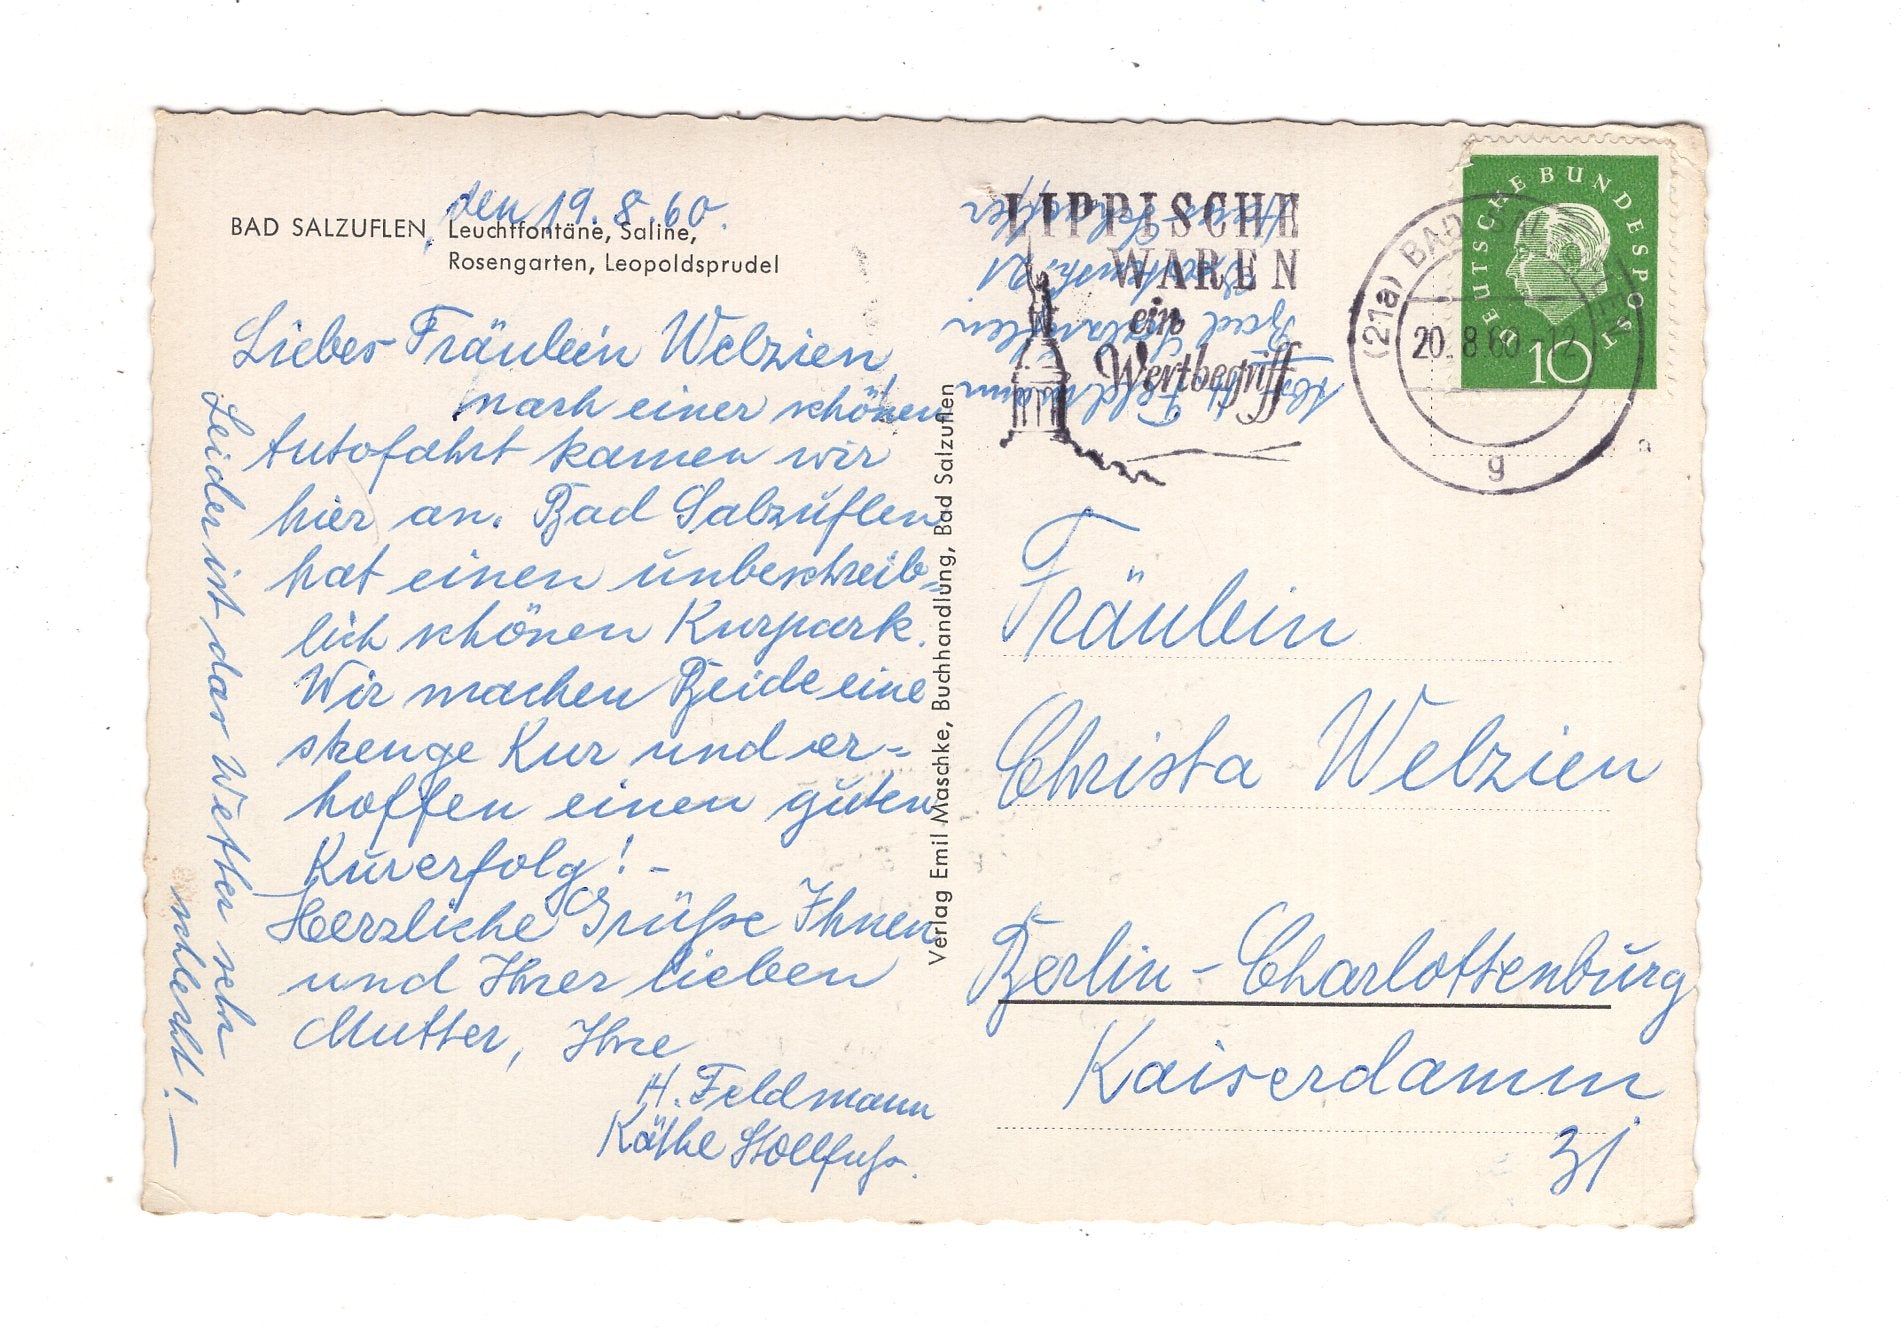 BAD SALZUFLEN, Leuchtfontäne, Saline,
Rosengarten, Leopoldsprudel
den 19.8.60.
Liebes Fräulein Welzien,
nach einer schönen
Autofahrt kamen wir
hier an. Bad Salzuflen
hat einen unbeschreib=
lich schönen Kurpark.
Wir machen Beide eine
strenge Kur und er=
hoffen einen guten
Kurerfolg! -
Herzliche Grüße Ihnen
und Ihrer lieben
Mutter, Ihre
H. Feldmann
Käthe Stollfuß.
Leider ist das Wetter sehr
schlecht! -
Verlag Emil Maschke, Buchhandlung, Bad Salzuflen
Abs. H. Feldmann
Bad Salzuflen
21
Haus
LIPPISCHE
WAREN
ein
Wertbegriff
(21a) BAD SALZUFLEN
20.8.60-12
g
DEUTSCHE BUNDESPOST
10
Fräulein
Christa Welzien
Berlin-Charlottenburg
Kaiserdamm
31